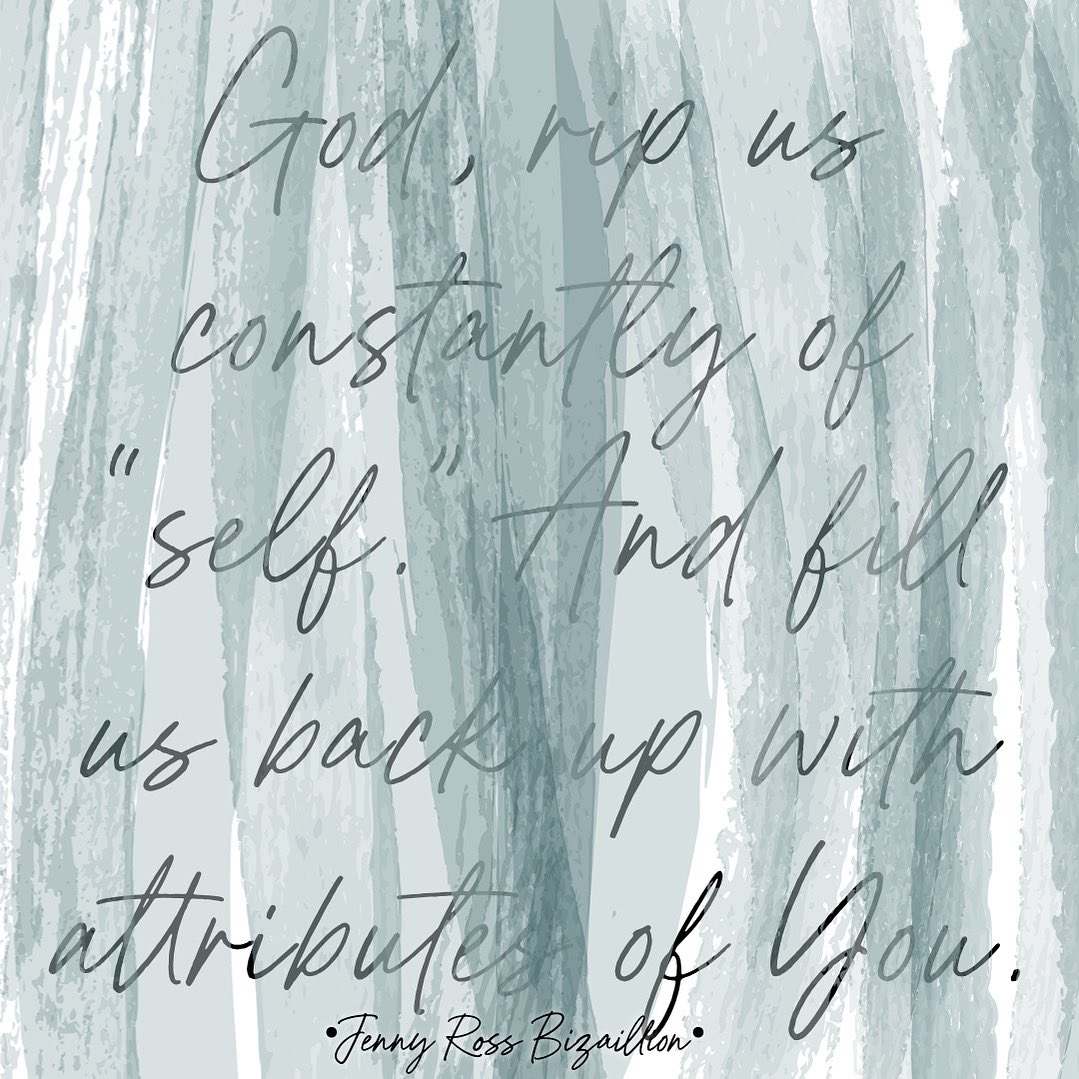 God, rip us
constantly of
"self." And fill
us back up with
attributes of You.
•Jenny Ross Bizaillion•